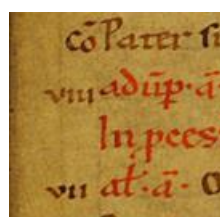 cō Pater si
viii ad ūp. ā
In pces
vii at. ā.